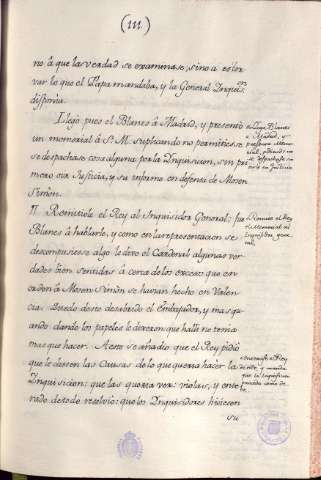 (111)
no á que la verdad se examinase, sino a estor
var lo que el Papa mandaba, y la General Inquis.on
disponia.
Llegó pues el Blanes á Madrid, y presentó
un memorial á S. M. suplicando no permitiese
se despachase cosa alguna por la Inquisicion, sin pri
mero oir Justicia, y su informe en defensa de Mosen
Simon.
Llega Blanes
a Madrid, y
presenta Memo
rial, pidiendo, no
se despachase
¶. Remitiole el Rey al Inquisidor General; fue
Blanes á hablarle, y como en la representacion se
descompusiese algo le dixo el Cardenal algunas ver
dades bien sentidas á cerca de los excesos que en
orden á Mosen Simon se havian hecho en Valen
cia. Quedó desto desabrido el Embajador, y mas qu
ando dando los papeles le dixeron que alli no tenia
mas que hacer. A esto se añadio que el Rey pidió
que le diesen las Causas de lo que queria hacer la
Inquisicion: que las queria ver: violas, y ente
rado de todo resolvió: que los Inquisidores hiciesen
su
Remite el Rey
el Memorial al
Inquisidor gene
ral.